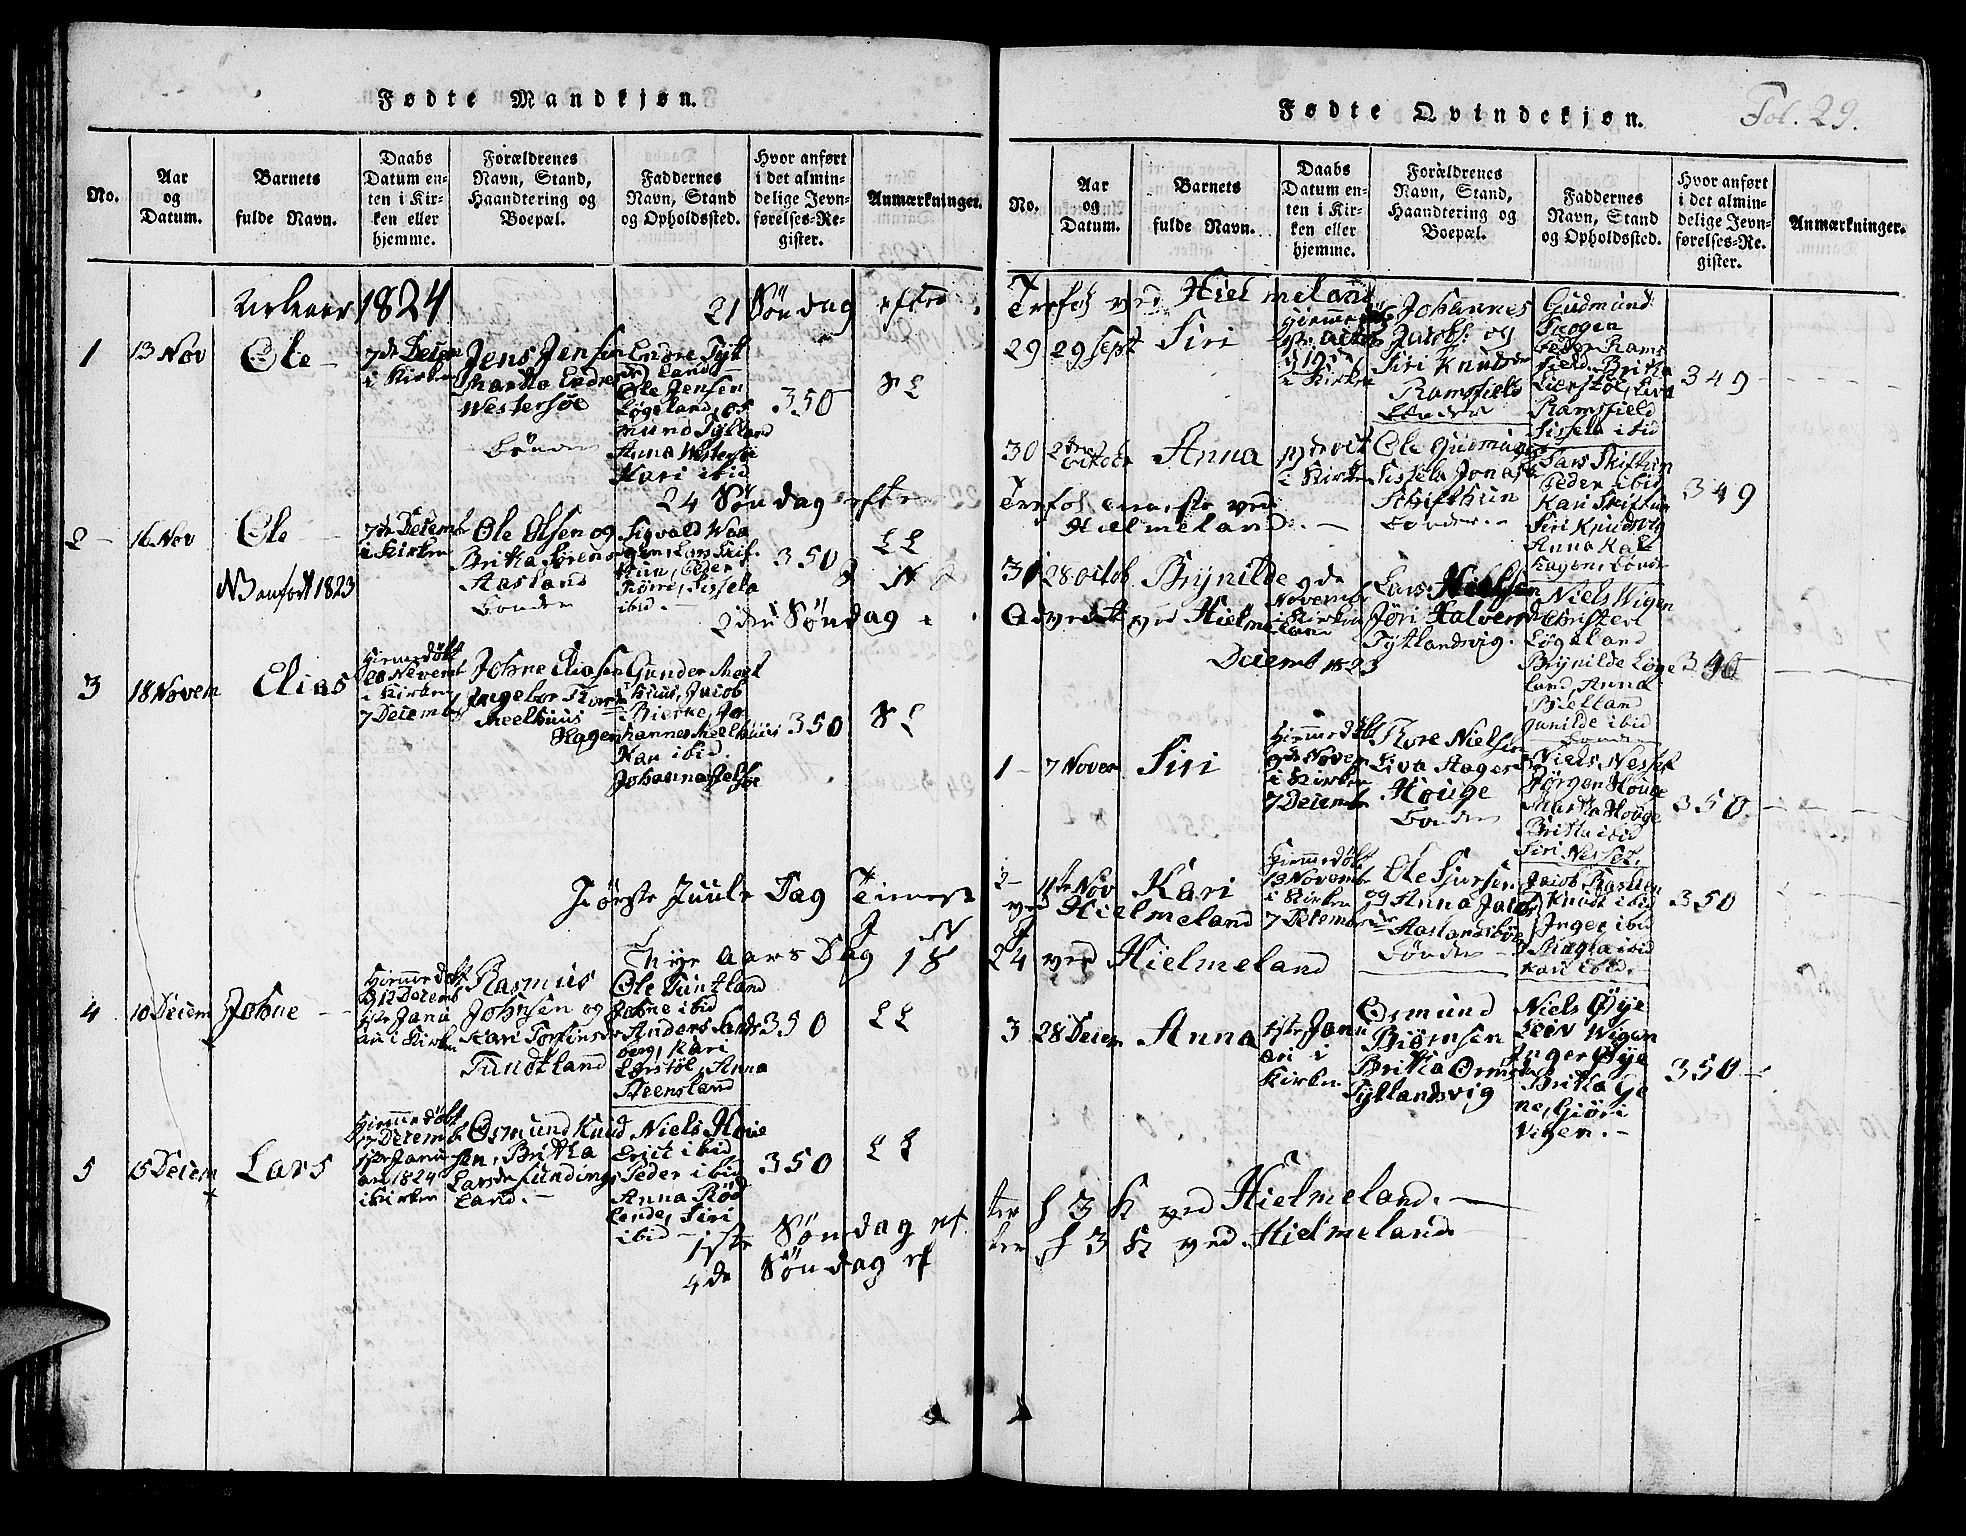 Fødte Mandkjøn.
No.
Aar
og
Datum.
Barnets
fulde Navn.
Daabs
Datum en-
ten i Kir-
ken eller
hjemme.
Forældrenes
Navn, Stand,
Haandtering og
Boepæl.
Faddernes
Navn, Stand
og Opholdssted.
Hvor anført
i det almin-
delige Jevn-
førelses-Re-
gister.
Anmærkninger.
1824
21 Söndag efter
1
13 Nov
Ole
7de Decem
i Kirken
Jens Jensen
Westersøe
Bönder
Endre Tyt
land
Ole Jensen
Løgeland, Os
mund Tytland
Anna Westersøe
Kari ibid
350
24 Söndag efte
2
16 Nov
Ole
NB anfört 1823
7de Decemb
i Kirken
Ole Olsen og
Britha Sørens
Aasland
Bonder
Sigvald Waa
gen, Lars Skif
tun, Peder
Sissela
ibid.
350
2den Söndag
3
18 Novem
Elias
Hiemedöbt
20 Novemb
i Kirken
7 Decemb
Johne Eliasen
Ingebor
Meelhuus
Gunder Meel
huus, Jacob
Bierke, Jo
hannes Meelhuus
Kari ibid
Johanna
350
Förste Juule Dag
Nye Aars Dag 18
4
10 Decem
Johne
Hiemedöbt
12 Decemb
1ste Janu
ari i Kirken
Rasmus
Johnsen og
Kari Torkinsdr
Tundtland
Ole Tuntland
Johne ibid
Anders Sands
berg, Kari
Lerstøl, Anna
Steensland
350
5
15 Decem
Lars
Hiemedöbt
17 Decemb
1ste Janu
ari 1824
i Kirken
Osmund Knud
sen, Britha
Larsdr Fundings
land.
Niels Høie
Erict ibid
Peder ibid
Anna Rød
lende, Siri
ibid
350
1ste Söndag ef
4de Söndag ef
Fødte Qvindekjøn.
Fol. 29.
No.
Aar
og
Datum.
Barnets
fulde Navn.
Daabs
Datum en-
ten i Kir-
ken eller
hjemme.
Forældrenes
Navn, Stand,
Haandtering og
Boepæl.
Faddernes
Navn, Stand
og Opholdssted.
Hvor anført
i det almin-
delige Jevn-
førelses-Re-
gister.
Anmærkninger.
Trefol ved Hielmeland
29
29 Sept
Siri
i Kirken
Johannes
Jacobs. og
Siri Knudsdr
Ramsfield
Bonder
Gudmund
Skogen
Peder Rams
field, Britha
Lierstøl, Siri
Ramsfield
Sissela ibid
349
30
Anna
i Kirken
Ole Gudmuns
Sissela Jonasdr
Schifthun
Bonder
Lars Skiftun
Peder ibid
Kari Skiftun
Siri Knudsvig
Anna
349
Hielmeland
31
28 Octob
Brynilde
9de
Novemb
i Kirken
Lars Nielsen
Jøri Halvorsdr
Tytlandsvig
Niels Wigen
Christerl
Løgeland
Brynilde Løge
land, Anna
Bielland
Gunilde ibid
Bonder
Advent ved Hielmeland
Decemb 1823
1
7 Novem
Siri
Hiemmedöbt
9de Novem
i Kirken
7 Decemb
Tore Nielsen
Siva Aagesdr
Houge
Bonder
Niels Nesset
Jörgen Houge
Martha Houge
Britha ibid
Siri Nesset.
350
2
11te Nov
Kari
Hiemmedöbt
13 Novemb
i Kirken
7 Decemb
Ole Siursen
og Anna Jacobs
Aaslandsbøe
Bönder
Jacob
Knudt ibid
Inger ibid
Magla ibid
Kari ibid.
350
ved Hielmeland
24 ved Hielmeland
3
28 Decem
Anna
1ste Janu
ari i
Kirken
Osmund
Biørnsen
Britha Orms
Tytlandsvig
Niels Øye
Leiv Wigen
Inger Øye
Britha Ge
ne, Giöri
Vigen.
350
ter f 3 K ved Hielmeland.
ter f 3 K ved Hielmeland